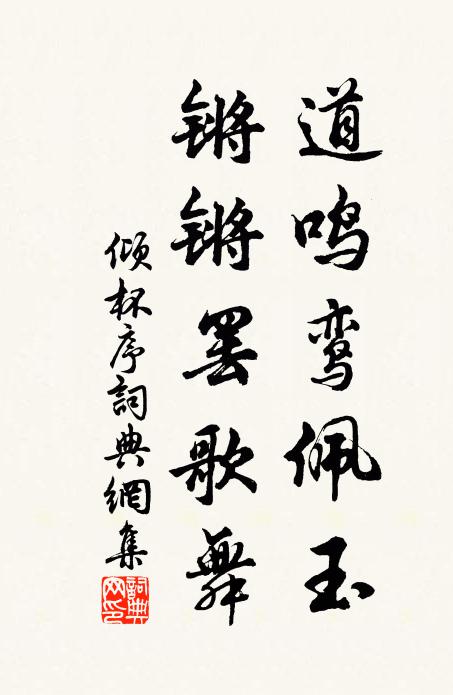 道鸣鸾佩玉
锵锵罢歌舞
倾杯序詞典網集
詞典网印